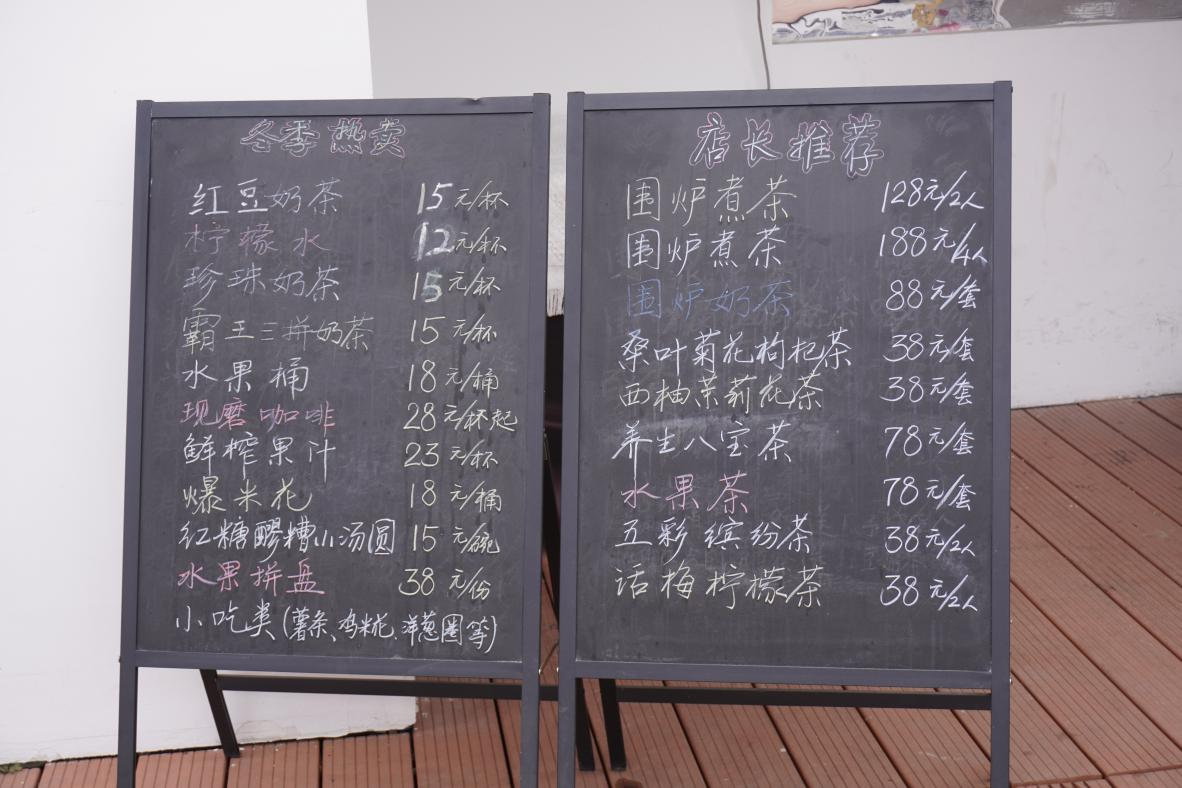 冬季热卖
红豆奶茶 15元/杯
柠檬水 12元/杯
珍珠奶茶 15元/杯
霸王三拼奶茶 15元/杯
水果桶 18元/桶
现磨咖啡 28元/杯起
鲜榨果汁 23元/杯
爆米花 18元/桶
红糖醪糟小汤圆 15元/碗
水果拼盘 38元/份
小吃类(薯条、鸡米花、洋葱圈等)
店长推荐
围炉煮茶 128元/2人
围炉煮茶 188元/4人
围炉奶茶 88元/套
桑叶菊花枸杞茶 38元/套
西柚茉莉花茶 38元/套
养生八宝茶 78元/套
水果茶 78元/套
五彩缤纷茶 38元/2人
话梅柠檬茶 38元/2人